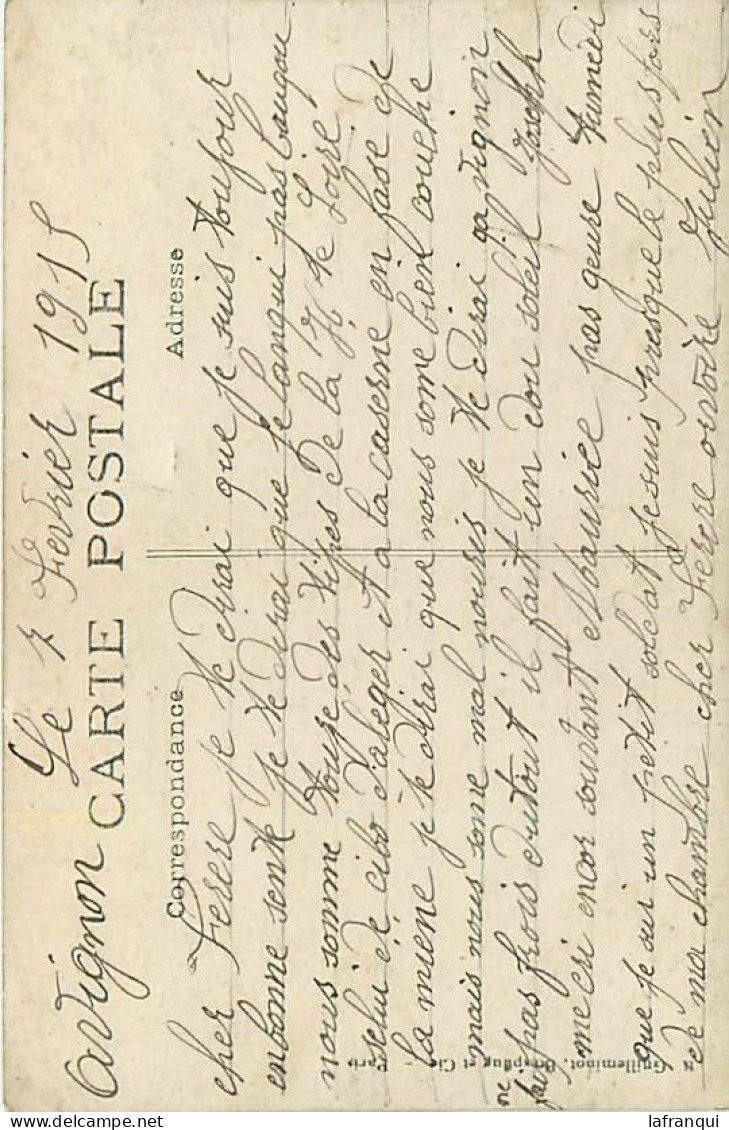 Avignon Le 7 Fevrier 1915
CARTE POSTALE
Correspondance Adresse
cher Ferere je te dirai que je suis toujour
enbonne sente je te dirai que je langui pas baucou
nous somme touse des tipes de la H te Loire
selui de cibo daleger et a la caserne en fase de
la miene je te dirai que nous some bien couche
mais nous some mal nouris je te dirai ca vignoin
ne fai pas frois dutout il fait un dou soleil Joseph
me cri encor souvant Maurice pas geure
que je sui un petit soldat je suis presque le plus fors
de ma chambre cher Ferere orvoire Julien
Guilleminot, Bœspflug et Cie - Paris
lafranqui